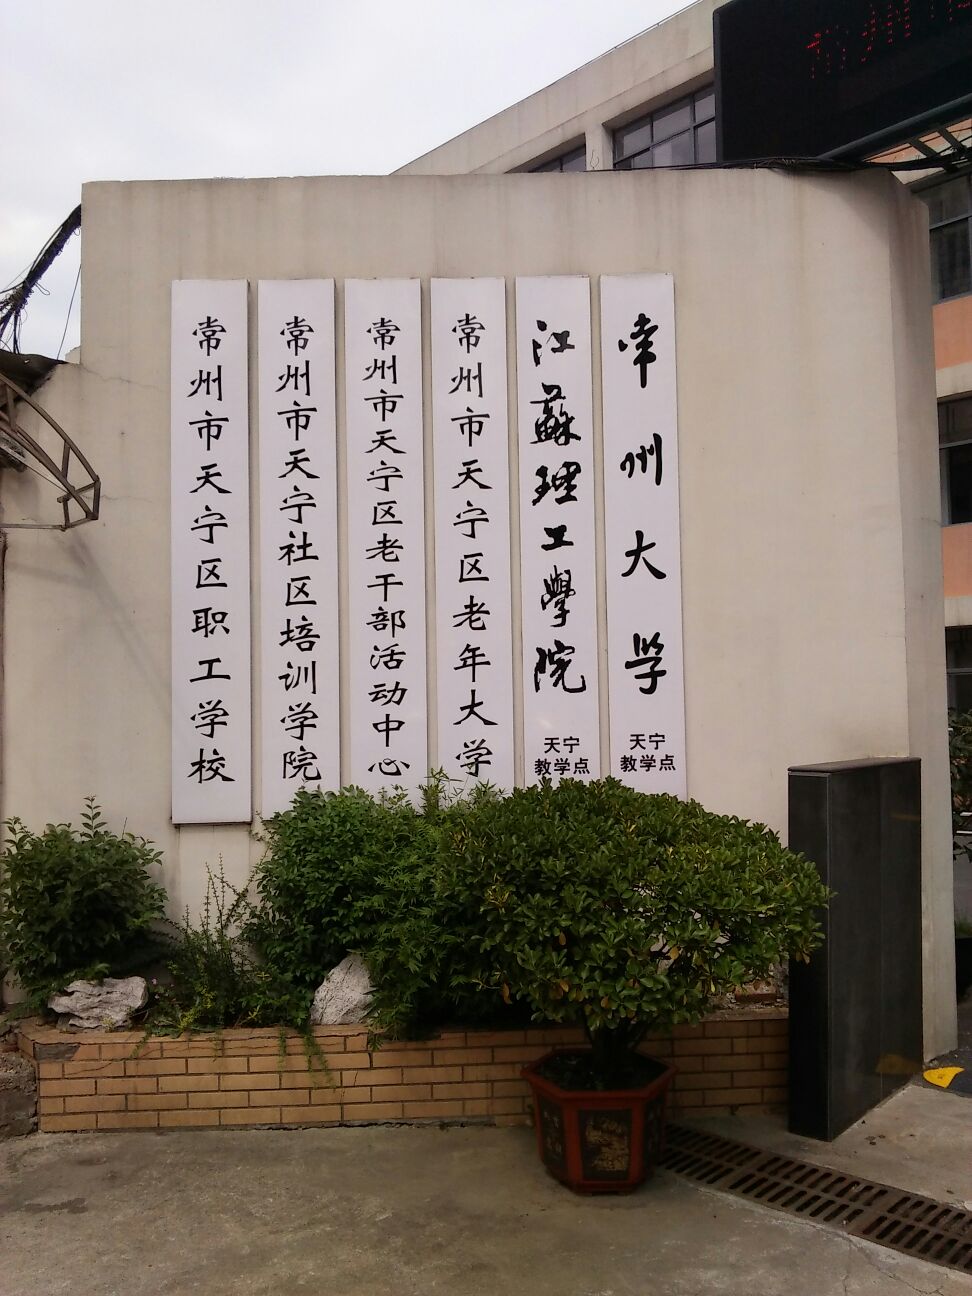 常州市天宁区职工学校
常州市天宁社区培训学院
常州市天宁区老干部活动中心
常州市天宁区老年大学
江蘇理工學院
天宁
教学点
常州大学
天宁
教学点